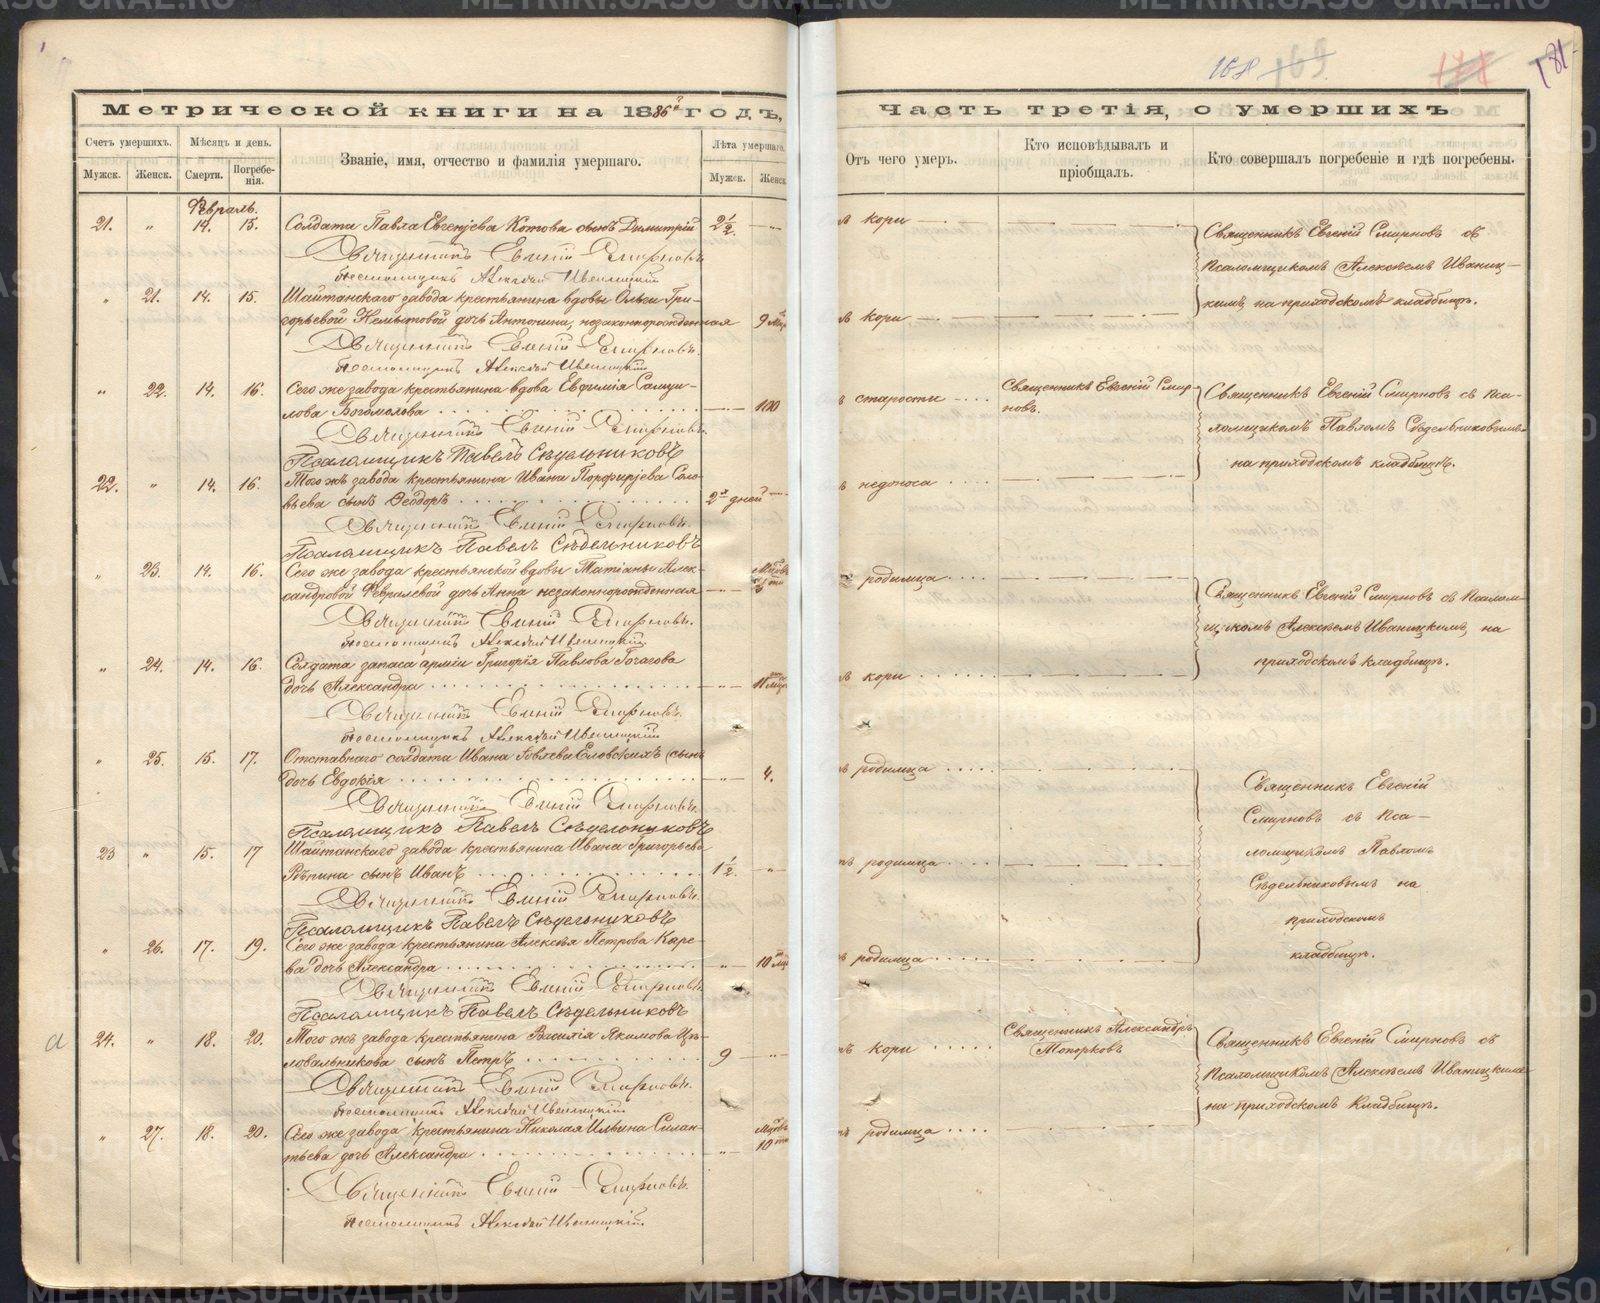 168 169 171 181
Метрической книги на 1886й годъ,
Счетъ умершихъ. Мѣсяцъ и день. Званіе, имя, отчество и фамилія умершаго. Лѣта умершаго.
Мужск. Женск. Смерти. Погребе-
нія. Мужск. Женск
Февраль.
21. " 14. 15. Солдата Павла Евгеніева Котова сынъ Димитрій 2½.
Священникъ Евгеній Смирновъ
Псаломщикъ Алексѣй Иваницкій
" 21. 14. 15. Шайтанскаго завода крестьянина вдовы Ольги Гри-
горьевой дочь Антонина, незаконнорожденная 9
Священникъ Евгеній Смирновъ.
Псаломщикъ Алексѣй Иваницкій
" 22. 14. 16. Сего же завода крестьянина вдова Евфимія Самуи-
лова Богомолова 100
Священникъ Евгеній Смирновъ.
Псаломщикъ Павелъ Сѣдельниковъ
22. " 14. 16. Того жъ завода крестьянина Ивана Порфирьева Соло-
вьева сынъ Ѳеодоръ 2хъ дней
Священникъ Евгеній Смирновъ.
Псаломщикъ Павелъ Сѣдельниковъ
" 23. 14. 16. Сего же завода крестьянской вдовы Татіаны Алек-
сандровой Февралевой дочь Анна незаконнорожденная
Священникъ Евгеній Смирновъ.
Псаломщикъ Алексѣй Иваницкій
" 24. 14. 16. Солдата запаса арміи Григорія Павлова
дочь Александра 11
Священникъ Евгеній Смирновъ.
Псаломщикъ Алексѣй Иваницкій
" 25. 15. 17. Отставнаго солдата Ивана Еловскихъ (сынъ
дочь Евдокія 4.
Священникъ Евгеній Смирновъ.
Псаломщикъ Павелъ Сѣдельниковъ
23 " 15. 17 Шайтанскаго завода крестьянина Ивана Григорьева
Рѣпина сынъ Иванъ 1½.
Священникъ Евгеній Смирновъ.
Псаломщикъ Павелъ Сѣдельниковъ
" 26. 17. 19. Сего же завода крестьянина Алексѣя Петрова Каре-
ва дочь Александра 10
Священникъ Евгеній Смирновъ.
Псаломщикъ Павелъ Сѣдельниковъ
24. " 18. 20. Того жъ завода крестьянина Василія Якимова Цѣ-
ловальникова сынъ Петръ 9
Священникъ Евгеній Смирновъ.
Псаломщикъ Алексѣй Иваницкій
" 27. 18. 20. Сего же завода крестьянина Николая Ильина Силан-
тьева дочь Александра 10
Священникъ Евгеній Смирновъ.
Псаломщикъ Алексѣй Иваницкій
Часть третія, о умершихъ
Отъ чего умеръ. Кто исповѣдывалъ и
пріобщалъ. Кто совершалъ погребеніе и гдѣ погребены.
кори
Священникъ Евгеній Смирновъ съ
Псаломщикомъ Алексѣемъ Иваниц-
кимъ на приходскомъ кладбищѣ.
кори
старости Священникъ Евгеній Смир-
новъ.
Священникъ Евгеній Смирновъ съ Пса-
ломщикомъ Павломъ Сѣдельниковымъ
на приходскомъ кладбищѣ.
недоноса
родимца
Священникъ Евгеній Смирновъ съ Псалом-
щикомъ Алексѣемъ Иваницкимъ, на
приходскомъ кладбищѣ.
кори
родимца
Священникъ Евгеній
Смирновъ съ Пса-
ломщикомъ Павломъ
Сѣдельниковымъ на
приходскомъ
кладбищѣ.
родимца
родимца
кори Священникъ Александръ
Топорковъ
Священникъ Евгеній Смирновъ съ
Псаломщикомъ Алексѣемъ Иваницкимъ
на приходскомъ кладбищѣ.
родимца
METRIKI.GASO-URAL.RU